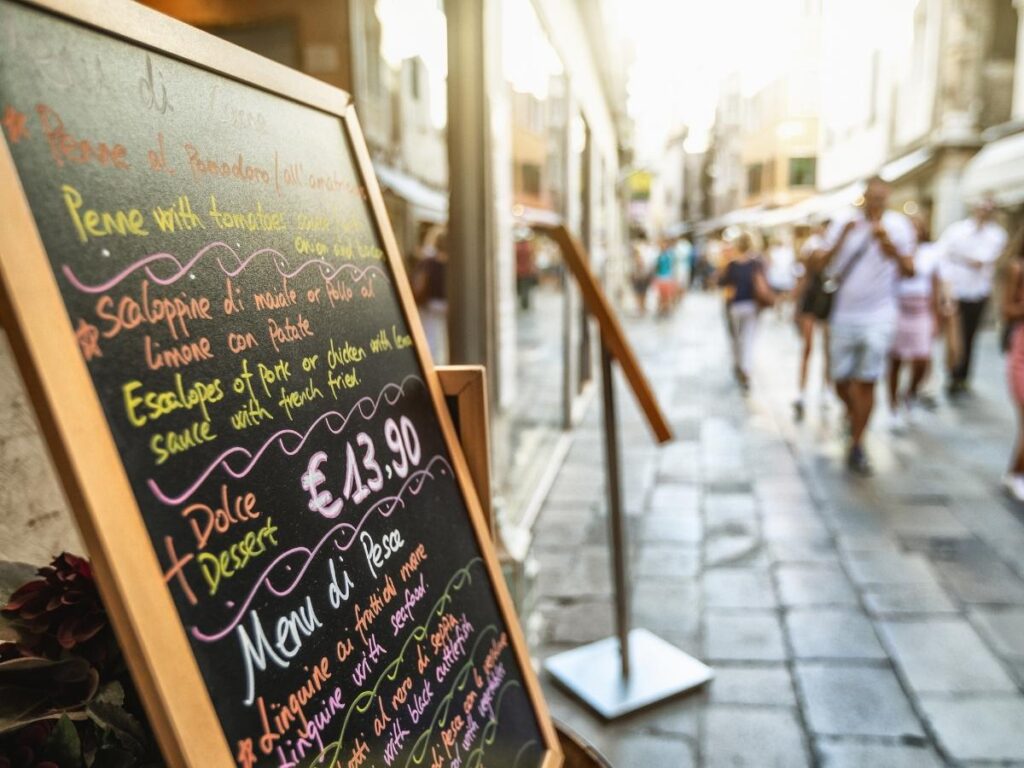 di Carne
* Penne al Pomodoro/all'
Penne with tomatoe sauce
onion and
* Scaloppine di maiale or Pollo al
limone con Patate
Escalopes of Pork or chicken with lemon
sauce with french fried.
€13,90
+ Dolce
Dessert
Menu di Pesce
* Linguine ai frutti di mare
Linguine with seafood
al nero di seppia
with black cuttlefish